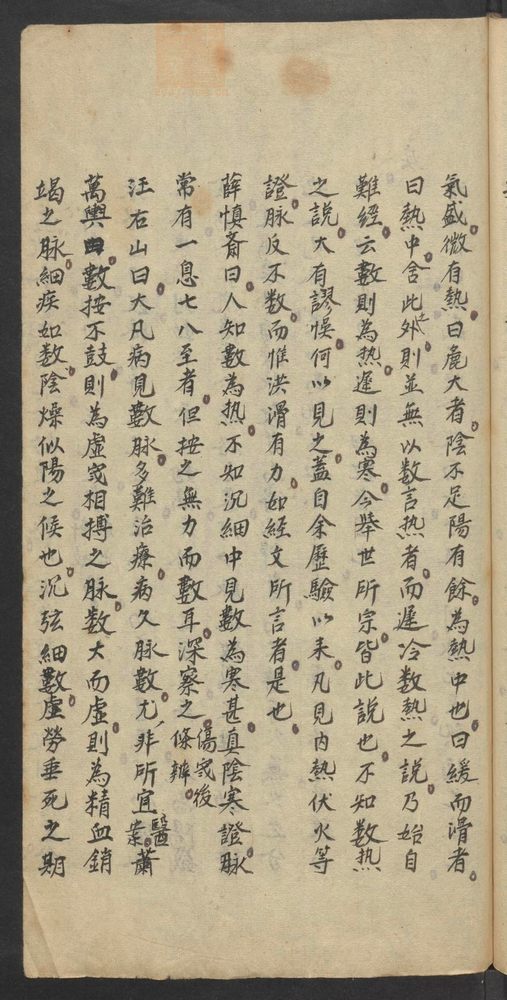 氣盛微有熱曰麄大者陰不足陽有餘為熱中也曰緩而滑者
曰熱中舍此之外則並無以数言热者而遲冷数熱之說乃始自
難經云數則為热遲則為寒今舉世所宗皆此說也不知数热
之說大有謬悮何以見之蓋自余歷驗以来凡見内熱伏火等
證脉反不数而惟洪滑有力如經文所言者是也
薛慎斎曰人知數為热不知沉細中見數為寒甚真陰寒證脉
常有一息七八至者但按之無力而數耳深察之傷寒後條辨
汪石山曰大凡病見數脉多難治療病久脉數尤非所宜醫案蕭
萬輿曰數按不鼓則為虚寒相搏之脉数大而虚則為精血銷
竭之脉細疾如数陰燥似陽之候也沉弦細數虚勞垂死之期